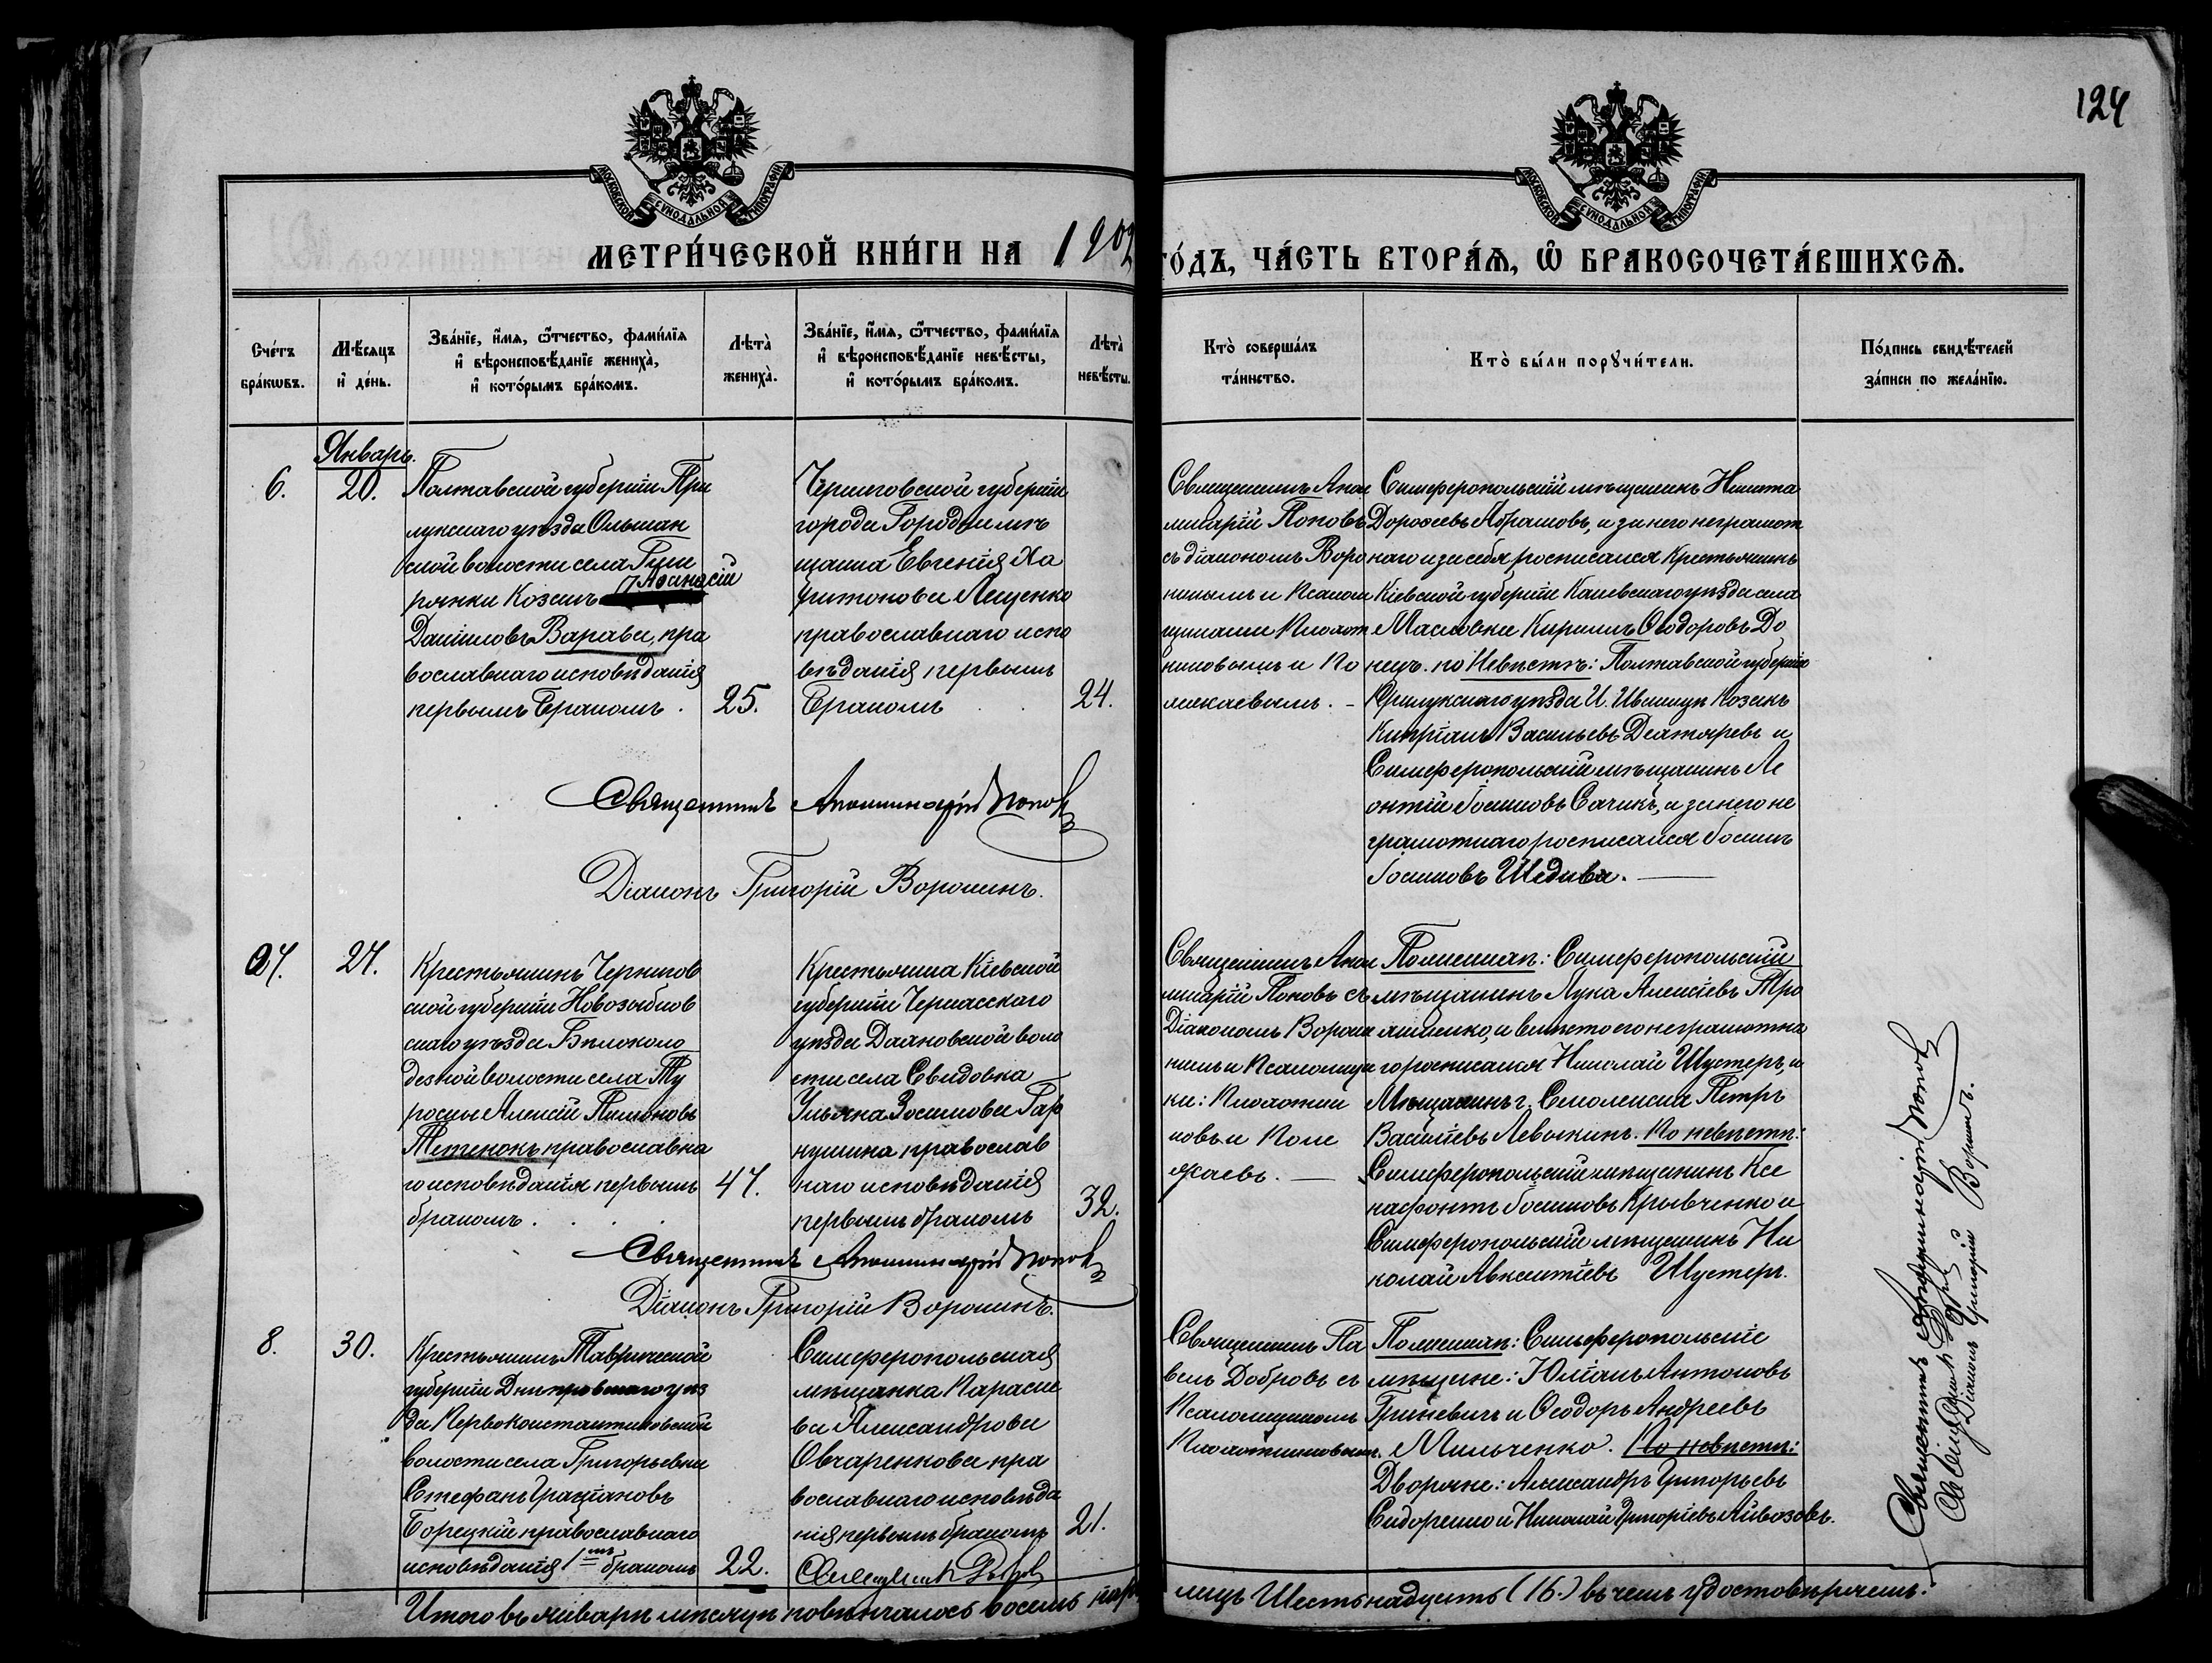 124
МОСКОВСКОЙ СѴНОДАЛЬНОЙ ТИПОГРАФІИ
МОСКОВСКОЙ СѴНОДАЛЬНОЙ ТИПОГРАФІИ
МЕТРИ́ЧЕСКОЙ КНИ́ГИ НА 1902
ГО́ДЪ, ЧА́СТЬ ВТОРА́Ѧ, Ѽ БРАКОСОЧЕТА́ВШИХСѦ.
Сче́тъ
бра́кѡвъ.
Мѣ́сѧцъ
и҆ де́нь.
Зва́нїе, и҆́мѧ, ѻ҆́тчество, фами́лїѧ
и҆ вѣроисповѣ́данїе жениха̀,
и҆ кото́рымъ бра́комъ.
Лѣта̀
жениха̀.
Зва́нїе, и҆́мѧ, ѻ҆́тчество, фами́лїѧ
и҆ вѣроисповѣ́данїе невѣ́сты,
и҆ кото́рымъ бра́комъ.
Лѣта̀
невѣ́сты.
Кто̀ соверша́лъ
та́инство.
Кто̀ бы́ли порꙋчи́тели.
По́дпись свидѣ́телей
за́писи по жела́нїю.
Январь.
6.
20.
Полтавской губерніи При
лукскаго уѣзда Ольшан
ской волости села
рянки Козакъ Аѳанасій
Даніиловъ Варава, пра
вославнаго исповѣданія
первымъ бракомъ.
25.
Черниговской губерніи
города Городни мѣ
щанка Евгенія Ха
ритонова Лещенко
православнаго испо
вѣданія первымъ
бракомъ
24.
Священникъ Апол
линарій Поповъ
съ діакономъ Воро
нинымъ и Псалом
щиками Плохот
никовымъ и По
лежаевымъ. –
Симферопольскій мѣщанинъ Никита
Дороѳеевъ Абрамовъ, и за него неграмот
наго и за себя росписался Крестьянинъ
Кіевской губерніи Каневскаго уѣзда села
Масловки Кириллъ Ѳеодоровъ До
нецъ. по Невѣстѣ: Полтавской губерніи
Прилукскаго уѣзда И. Иваница Козакъ
Кипріанъ Васильевъ Дехтяревъ и
Симферопольскій мѣщанинъ Ле
онтій Іосифовъ Сачикъ, а за него не
грамотнаго росписался Іосифъ
Іосифовъ Шедива.
Священникъ Аполлинарій Поповъ
Діаконъ Григорій Воронинъ.
7.
27.
Крестьянинъ Чернигов
ской губерніи Новозыбков
скаго уѣзда Бѣлоколо
дезной волости села Ту
росны Алексій Пименовъ
Тетенокъ православна
го исповѣданія первымъ
бракомъ.
47.
Крестьянка Кіевской
губерніи Черкасскаго
уѣзда Дахновской воло
сти села Свидовка
Ульяна Зосимова Гар
кушина православ
наго исповѣданія
первымъ бракомъ
32.
Священникъ Апол
линарій Поповъ съ
Діакономъ Ворони
нымъ и Псаломщи
ки: Плохотни
ковъ и Поле
жаевъ. —
По женихѣ: Симферопольскій
мѣщанинъ Лука Алексіевъ Тро
яненко, и вмѣсто его неграмотна
го росписался Николай Шустеръ, и
Мѣщанинъ г. Смоленска Петръ
Василіевъ Левыкинъ. По невѣстѣ:
Симферопольскій мѣщанинъ Ксе
нафонтъ Іосифовъ Крывченко и
Симферопольскій мѣщанинъ Ни
колай Авксентіевъ Шустеръ.
Священникъ Аполлинарій Поповъ
Діаконъ Григорій Воронинъ.
8.
30.
Крестьянинъ Таврической
губерніи Днѣпровскаго уѣз
да Первоконстантиновской
волости села Григорьевки
Стефанъ Граціановъ
Борецкій православнаго
исповѣданія 1мъ бракомъ
22.
Симферопольская
мѣщанка Параске
ва Александрова
Овчаренкова пра
вославнаго исповѣда
нія первымъ бракомъ
21.
Священникъ Па
велъ Добровъ съ
Псаломщикомъ
Плохотниковымъ.
По женихѣ: Симферопольскіе
мѣщане: Юліанъ Антоновъ
Гриневичъ и Ѳеодоръ Андреевъ
Мильченко. По невѣстѣ:
Дворяне: Александръ Григорьевъ
Сидоренко и Николай Григоріевъ Айвозовъ.
Священникъ П. Добровъ
Священникъ Аполлинарій Поповъ
Священникъ П. Добровъ
Діаконъ Григорій Воронинъ.
Итого въ январѣ мѣсяцѣ повѣнчалось восемь паръ,
лицъ Шестьнадцать (16.) въ чемъ удостовѣряемъ: